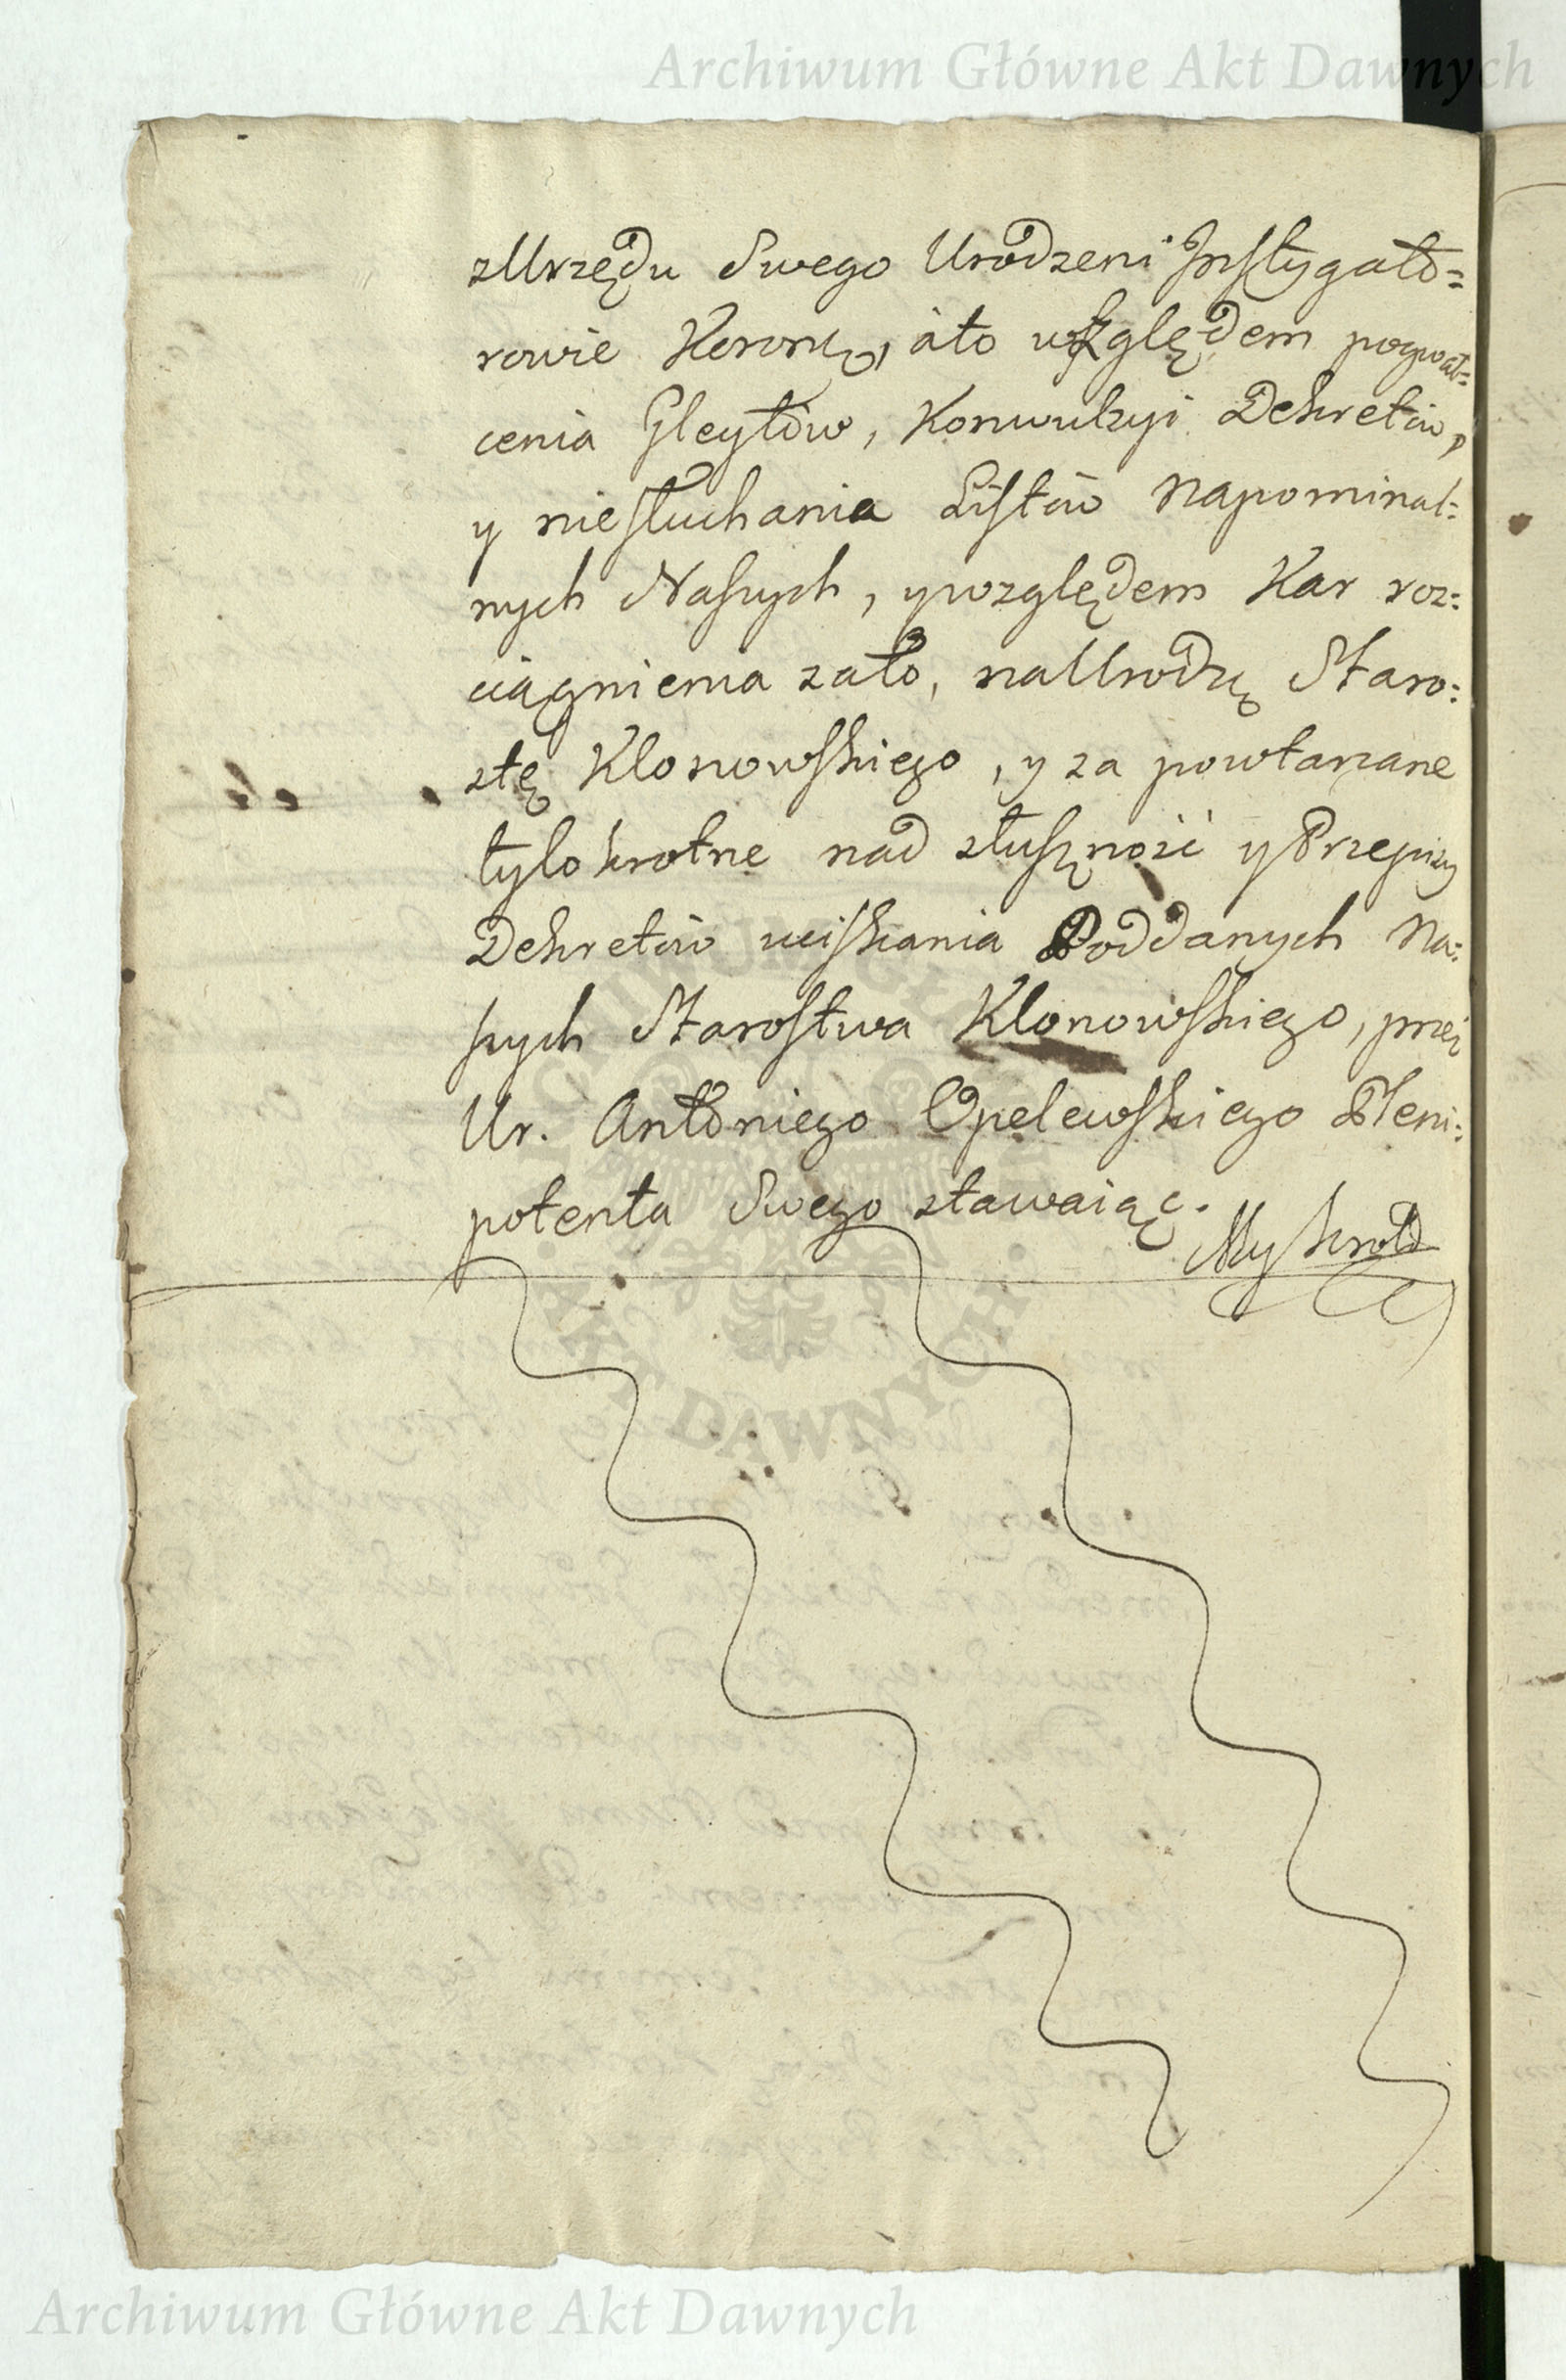 Archiwum Główne Akt Dawnych
z Urzędu Swego Urodzeni Instygato=
rowie Koronni, ato względem pogwał=
cenia Gleytów, Konwulzyi Dekretów,
y niesłuchania Listów Napominal=
nych Naszych, y względem Kar roz=
ciągnienia zato, na Urodzę Staro=
stę Klonowskiego, y za powtarzane
tylokrotne nad słuszność y Przepisy
Dekretów uciskania Poddanych Na=
szych Starostwa Klonowskiego, przez
Ur. Antoniego Opelewskiego Pleni=
potenta Swego stawaiąc.
My Krol
ARCHIWUM GŁÓWNE AKT DAWNYCH
Archiwum Główne Akt Dawnych